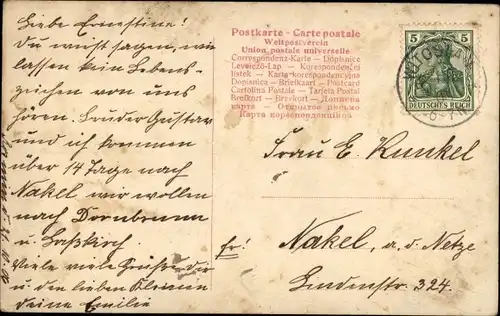 Liebe Ernestine!
Du wirst sagen, wir
lassen kein Lebens-
zeichen von uns
hören. Bruder Gustav
und ich kommen
über 14 Tage nach
Nakel wir wollen
nach Dornbrunn
u.
Viele viele Grüße Dir
u den lieben Kleinen
deine Emilie
Postkarte - Carte postale
Weltpostverein
Union postale universelle
Correspondenz-Karte - Dopisnice
Levelező-Lap - Korespondenční
listek - Karta korespondencyjna
Dopisnica - Briefkaart - Postcard
Cartolina Postale - Tarjeta Postal
Brefkort - Brevkort - Дописна
карта - Открытое письмо
Карта кореспонденциона
5 5
DEUTSCHES REICH
Frau E. Kunkel
Nakel, a. d. Netze
Lindenstr. 324.